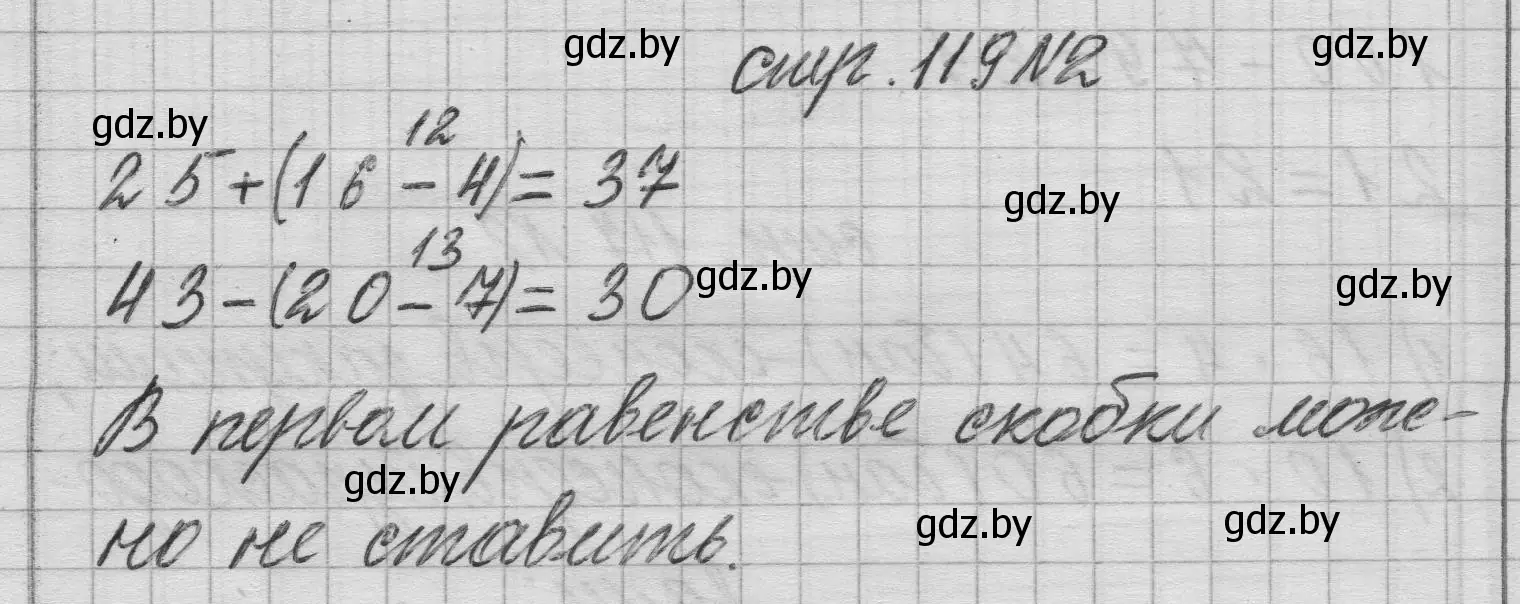 gdz.by
стр. 119 №2
gdz.by
gdz.by
12
25+(16-4)=37
gdz.by
13
43-(20-7)=30
gdz.by
gdz.by
В первом равенстве скобки мож-
gdz.by
gdz.by
gdz.by
но не ставить.